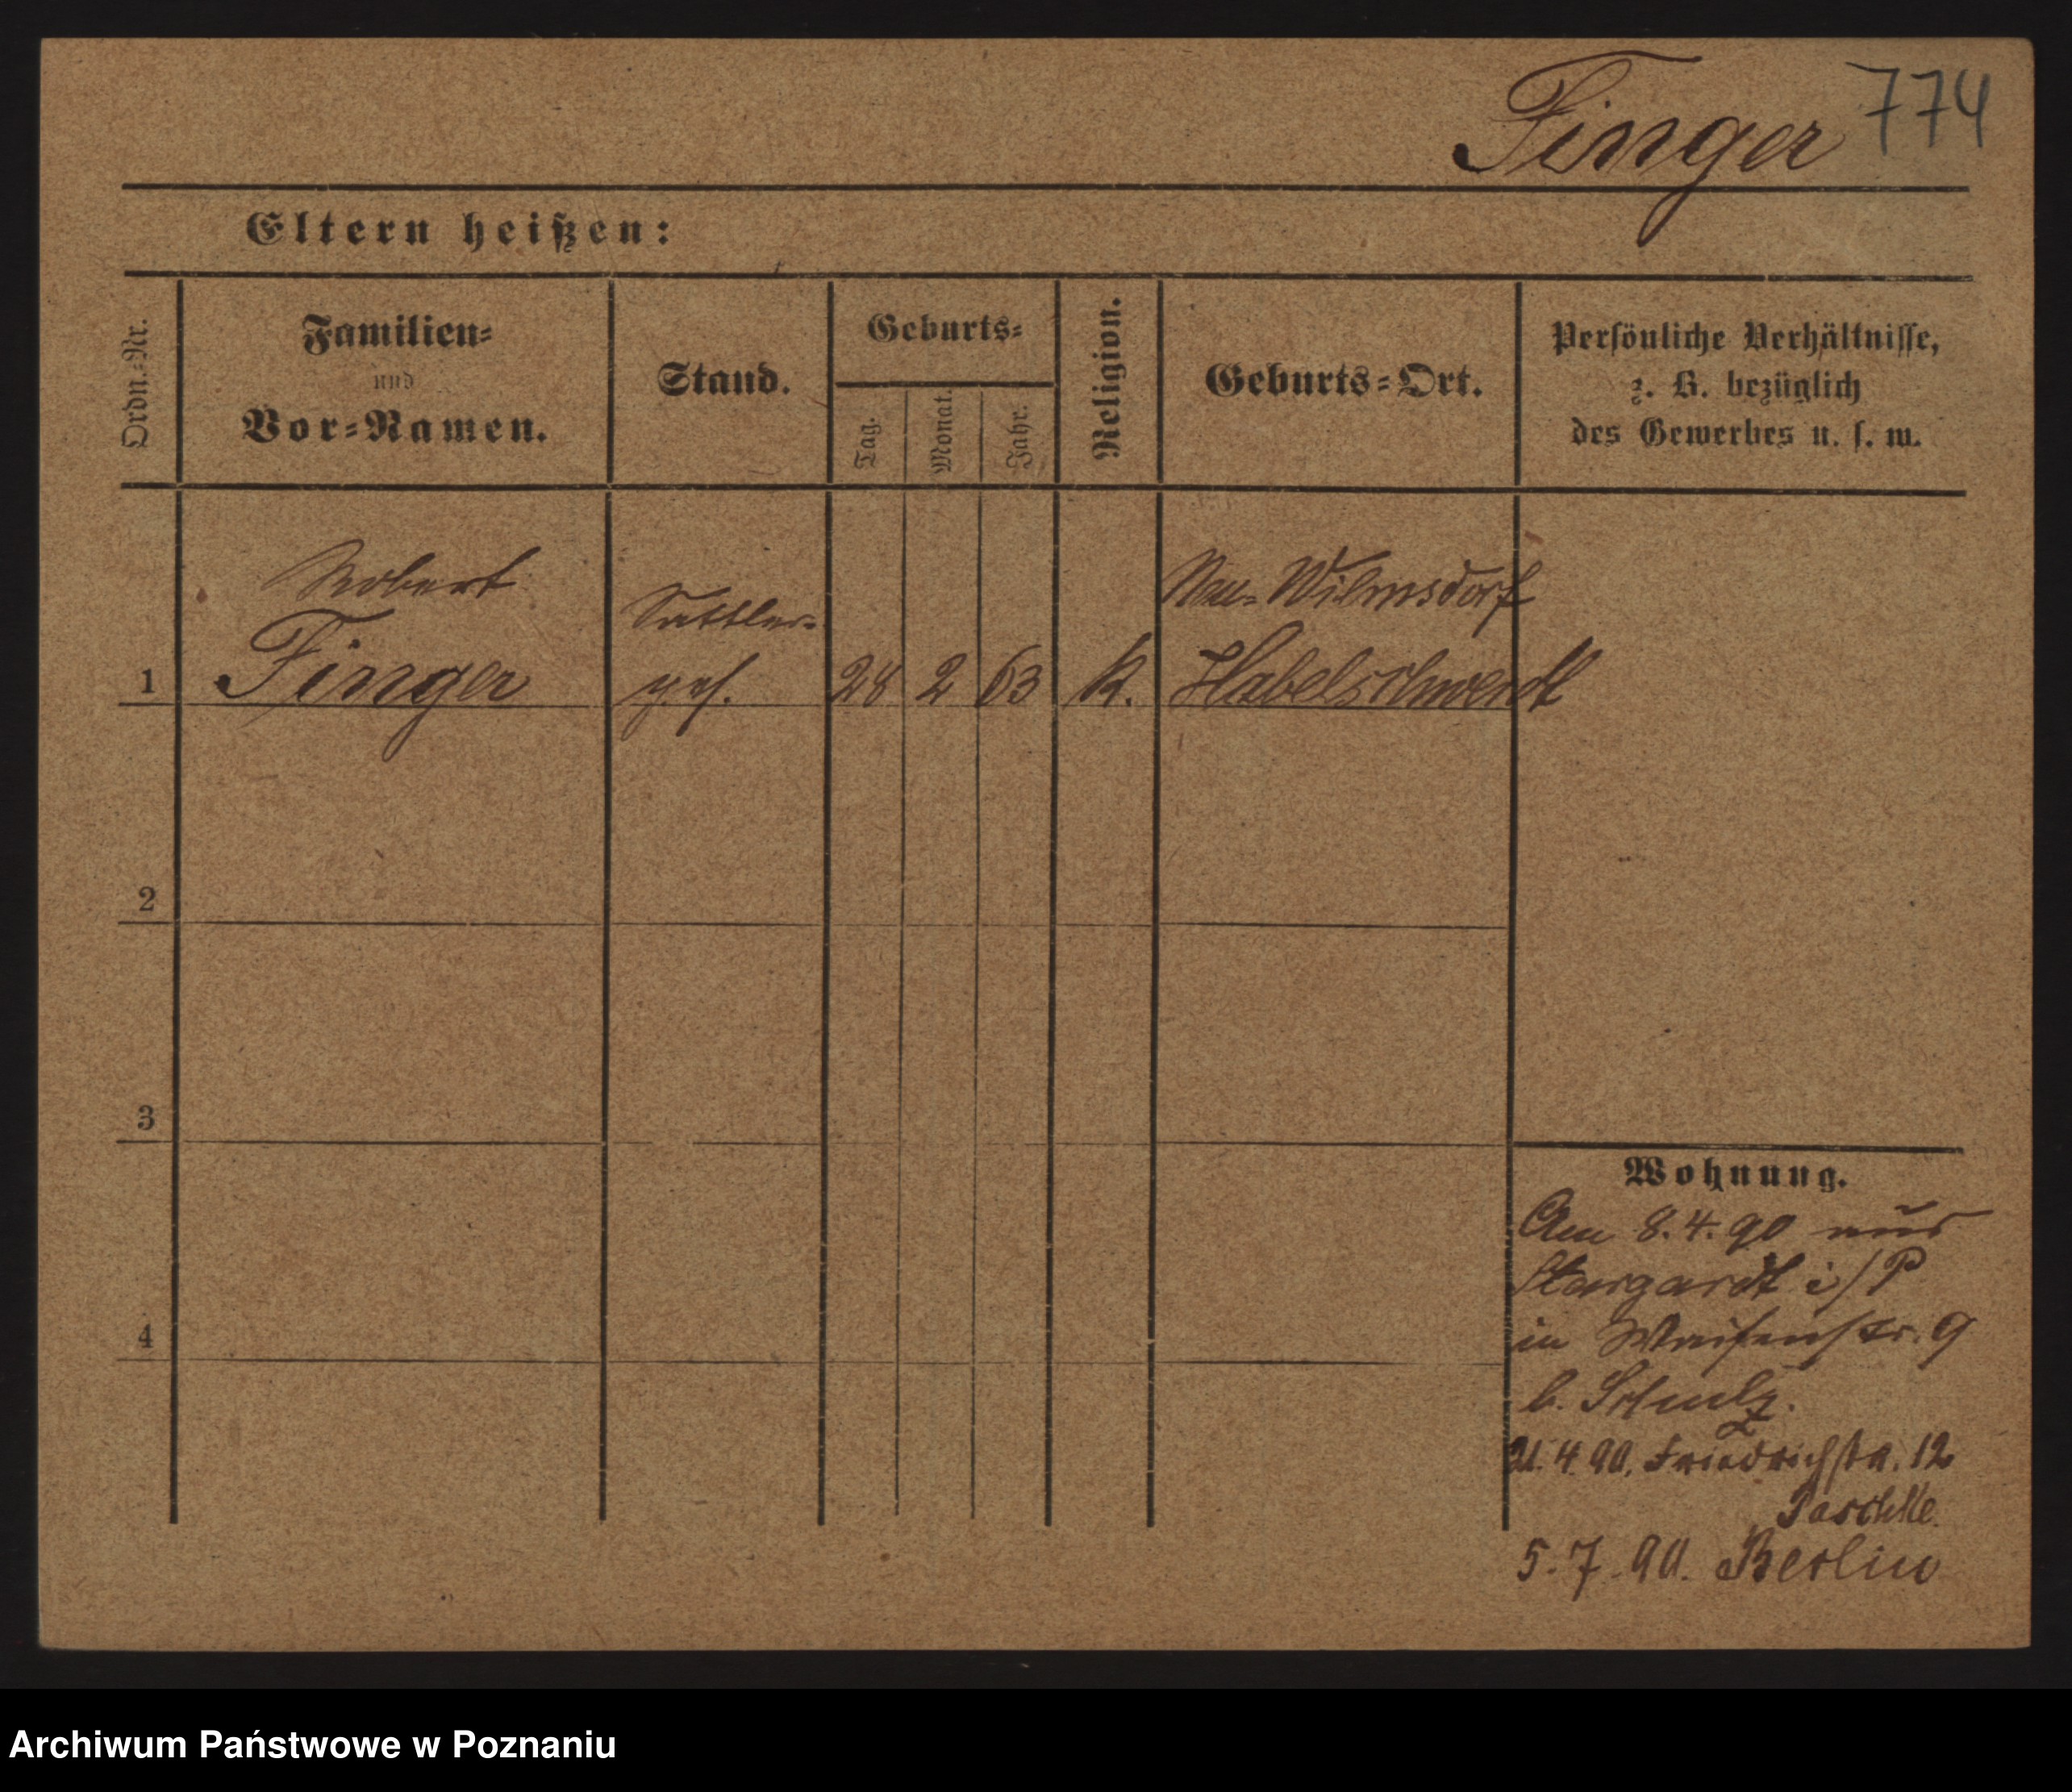 Finger 774
Eltern heißen:
Ordn.-Nr.
Familien-
und
Vor-Namen.
Stand.
Geburts-
Tag.
Monat.
Jahr.
Religion.
Geburts-Ort.
Persönliche Verhältnisse,
z. B. bezüglich
des Gewerbes u. s. w.
Robert
Finger
Sattler-
ges.
1
28 2 63 k.
Neu-Wilmsdorf
Habelschwerdt
2
3
4
Wohnung.
Am 8.4.90 aus
Stargardt i/P
in Waisenstr. 9
b. Schulz.
21.4.90. Friedrichstr. 12
Paschke.
5.7.90. Berlin
Archiwum Państwowe w Poznaniu